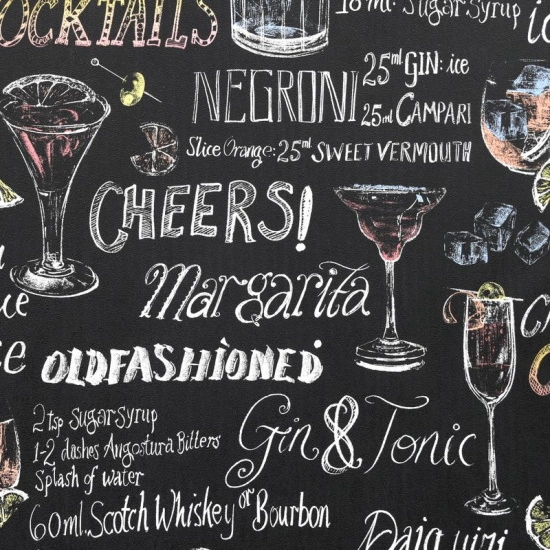 COCKTAILS
10 ml. Sugar Syrup
NEGRONI
25ml GIN: ice
25ml CAMPARI
Slice Orange: 25ml SWEET VERMOUTH
CHEERS!
Margarita
OLDFASHIONED
2 tsp Sugar Syrup
1-2 dashes Angostura Bitters
Splash of water
60ml. Scotch Whiskey or Bourbon
Gin & Tonic
Daiquiri